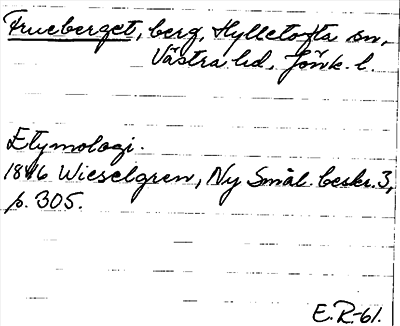 Frueberget, berg, Hylletofta sn,
Västra hd, Jönk. l.
Etymologi.
1846 Wieselgren, Ny Smål. beskr. 3,
p. 305.
E. R-61.